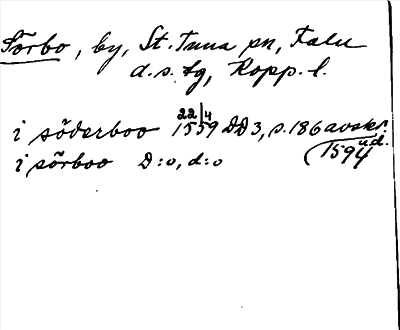 Sörbo, by, St. Tuna sn, Falu
d.s. tg, Kopp. l.
i söderboo 22/4 1559 DD 3, s. 186 avskr.
i sörboo D:o, d:o (1594 u.d.